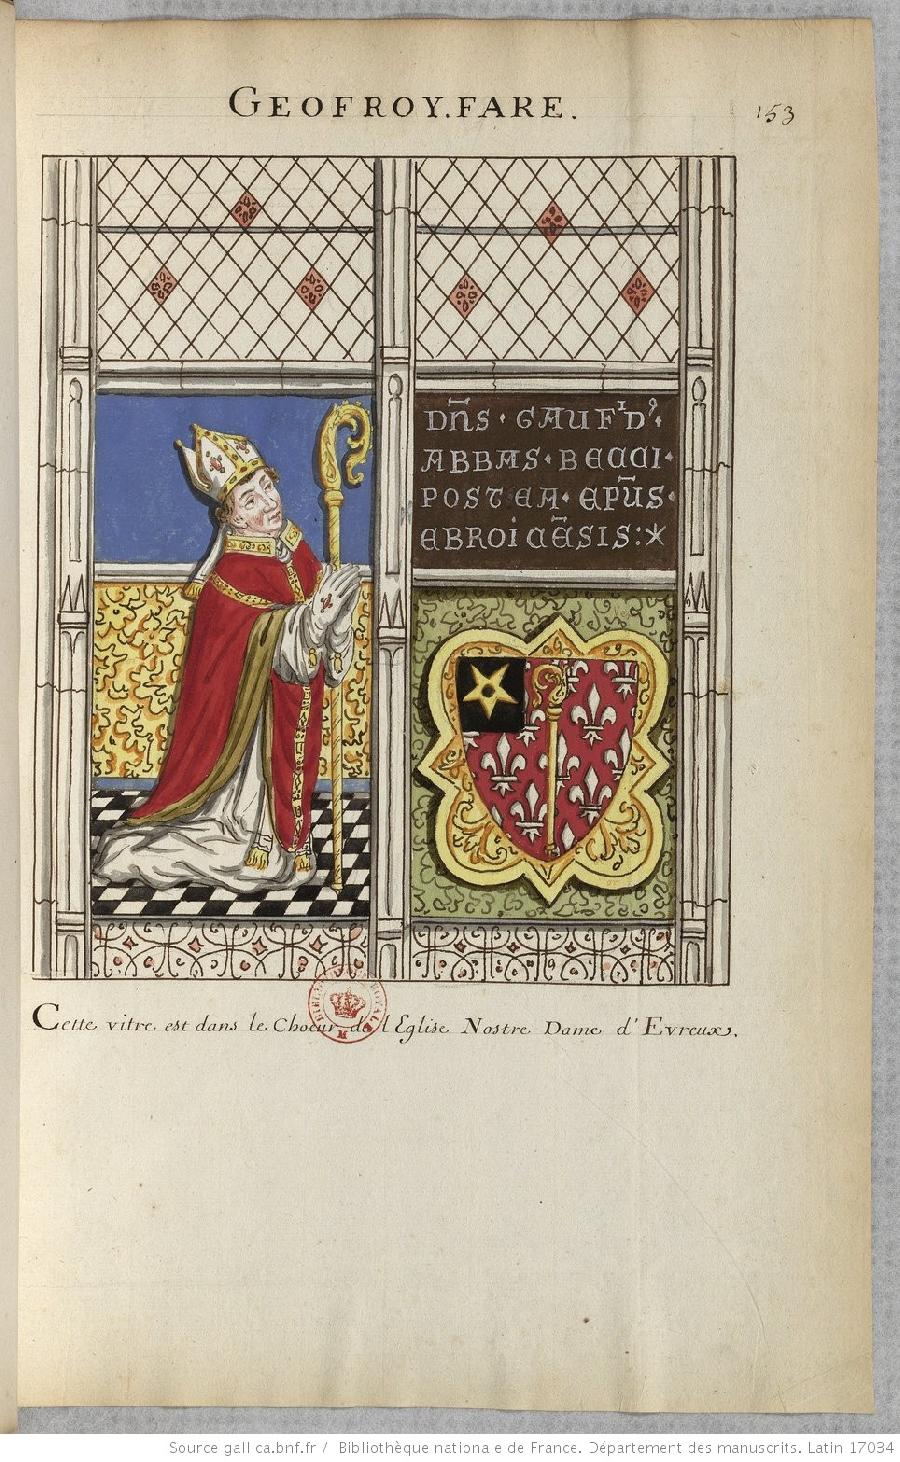 GEOFROY.FARE.
153
Dn̄S · GAUFID⁹·
ABBAS · BECCI ·
POSTEA · EPU̅S ·
EBROICE̅SIS : ✶
Cette vitre est dans le Choeur de l Eglise Nostre Dame d' Evreux.
Source gallica.bnf.fr / Bibliothèque nationale de France. Département des manuscrits. Latin 17034